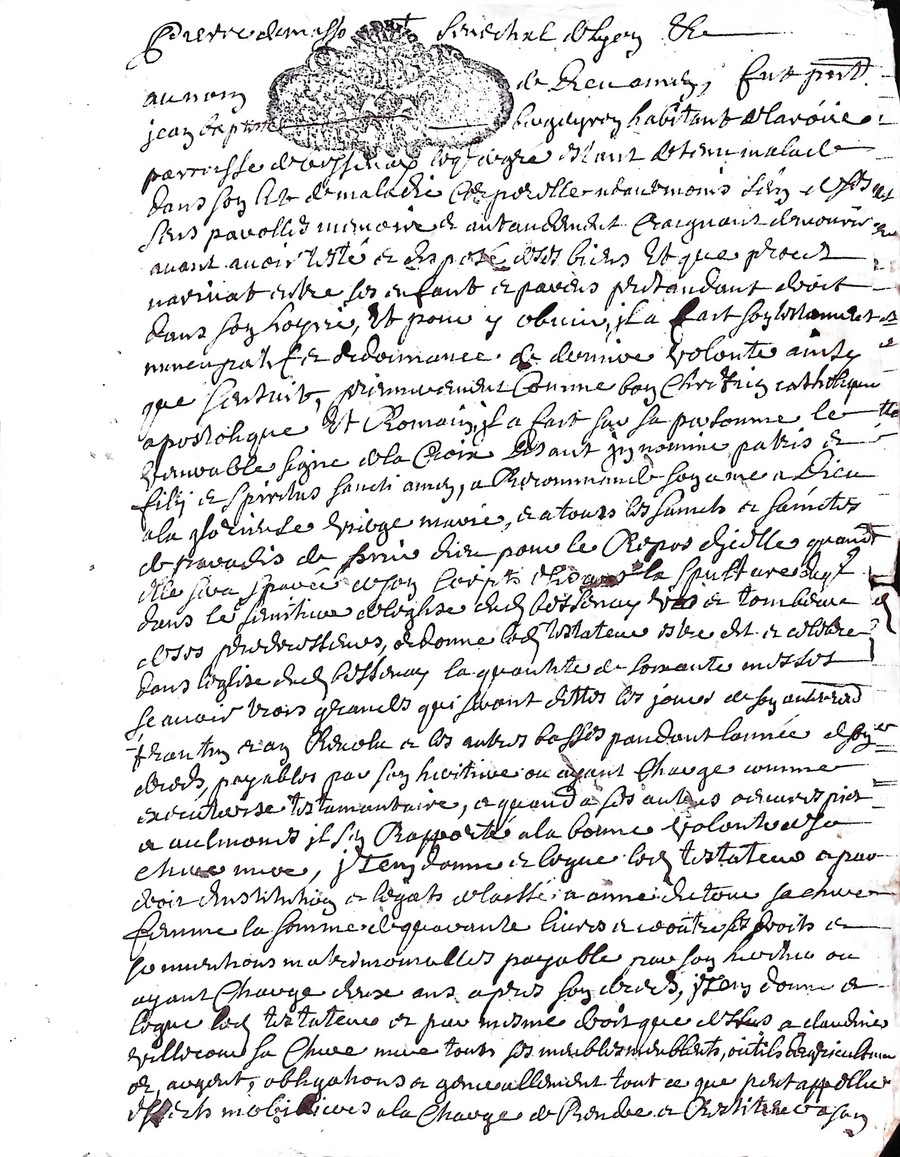 Pierre de masso Seneschal de lyon &c
au nom de Dieu amen, fut pnt
jean baptiste habitant de
parroisse de bessenay lequel de gré estant detenu malade
dans son lit de maladie corporelle neaumoins sain de ses
sens parolles memoire et antandement craignant de mourir
avant avoir testé et disposé de ses biens Et que procez
narrivat entre ses enfants et parens pretandant droit
dans son hoyrie, Et pour y obvier, il a fait son testament
nuncupatif et ordonnance de derniere volonté ainsy
que sensuit, premierement Comme bon Chretien catholique
apostolique Et Romain, il a fait sur sa personne le
venerable signe de la Croix disant in nomine patris et
filii et spiritus sancti amen, a Recommandé son ame a Dieu
a la glorieuse vierge marie, et a tous les saincts et sainctes
de paradis de prier dieu pour le Repos d'icelle quand
elle sera separée de son Corps la sepulture
dans le simitiere de leglise dud bessenay et tombeau
de ses predecesseurs, ordonne led testateur estre dit et celebré
dans leglise dud bessenay la quantité de soixante messes
scavoir trois grandes qui seront dittes les jours de son enterrement
quarantin et an Revolu et les autres basses pandant lannée de son
deceds, payables par son heritiere ou ayant Charge comme
executerisse testamantaire, et quand a ses autres oeuvres pies
et aulmones il sen Rapporte a la bonne volonté de sa
chere mere, Item donne et legue led testateur et par
droit dinstitution et legats delaissé a anne sa chere
femme la somme de quarante livres et outre ses droits et
conventions matrimonialles payable par son heritier ou
ayant Charge deux ans apres son deceds, Item donne et
legue led testateur et par mesme droit que dessus a claudine
sa Chere mere tous ses meubles meublents, outils d'agriculture
or, argent, obligations et generallement tout ce que peut appeller
effects mobiliaires a la Charge de Rendre et Restituer a son